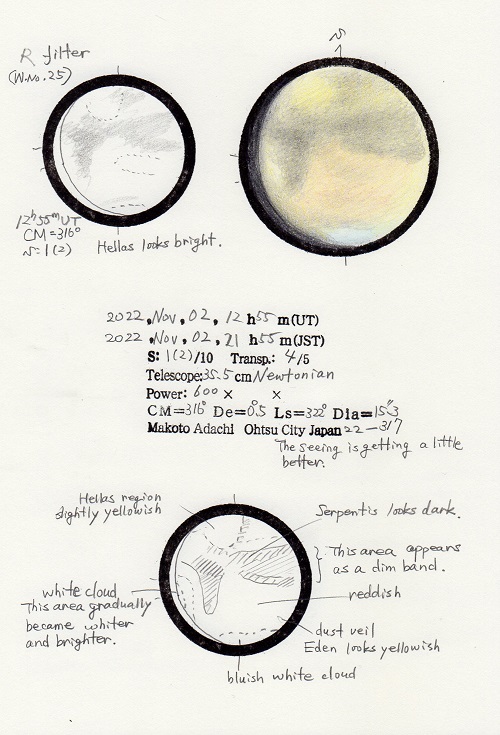 R filter
(W.No.25)
S
12h 55m UT
CM=316°
S:1(2)
Hellas looks bright.
2022, Nov, 02, 12 h 55 m(UT)
2022, Nov, 02, 21 h 55 m(JST)
S: 1(2)/10 Transp.: 4/5
Telescope: 35.5 cm Newtonian
Power: 600 × ×
CM=316° De=0.5° Ls=322° Dia=15".3
Makoto Adachi Ohtsu City Japan 22-317
The seeing is getting a little
better.
Hellas region
slightly yellowish
Serpentis looks dark.
This area appears
as a dim band.
white cloud
This area gradually
became whiter
and brighter.
reddish
dust veil
Eden looks yellowish
bluish white cloud